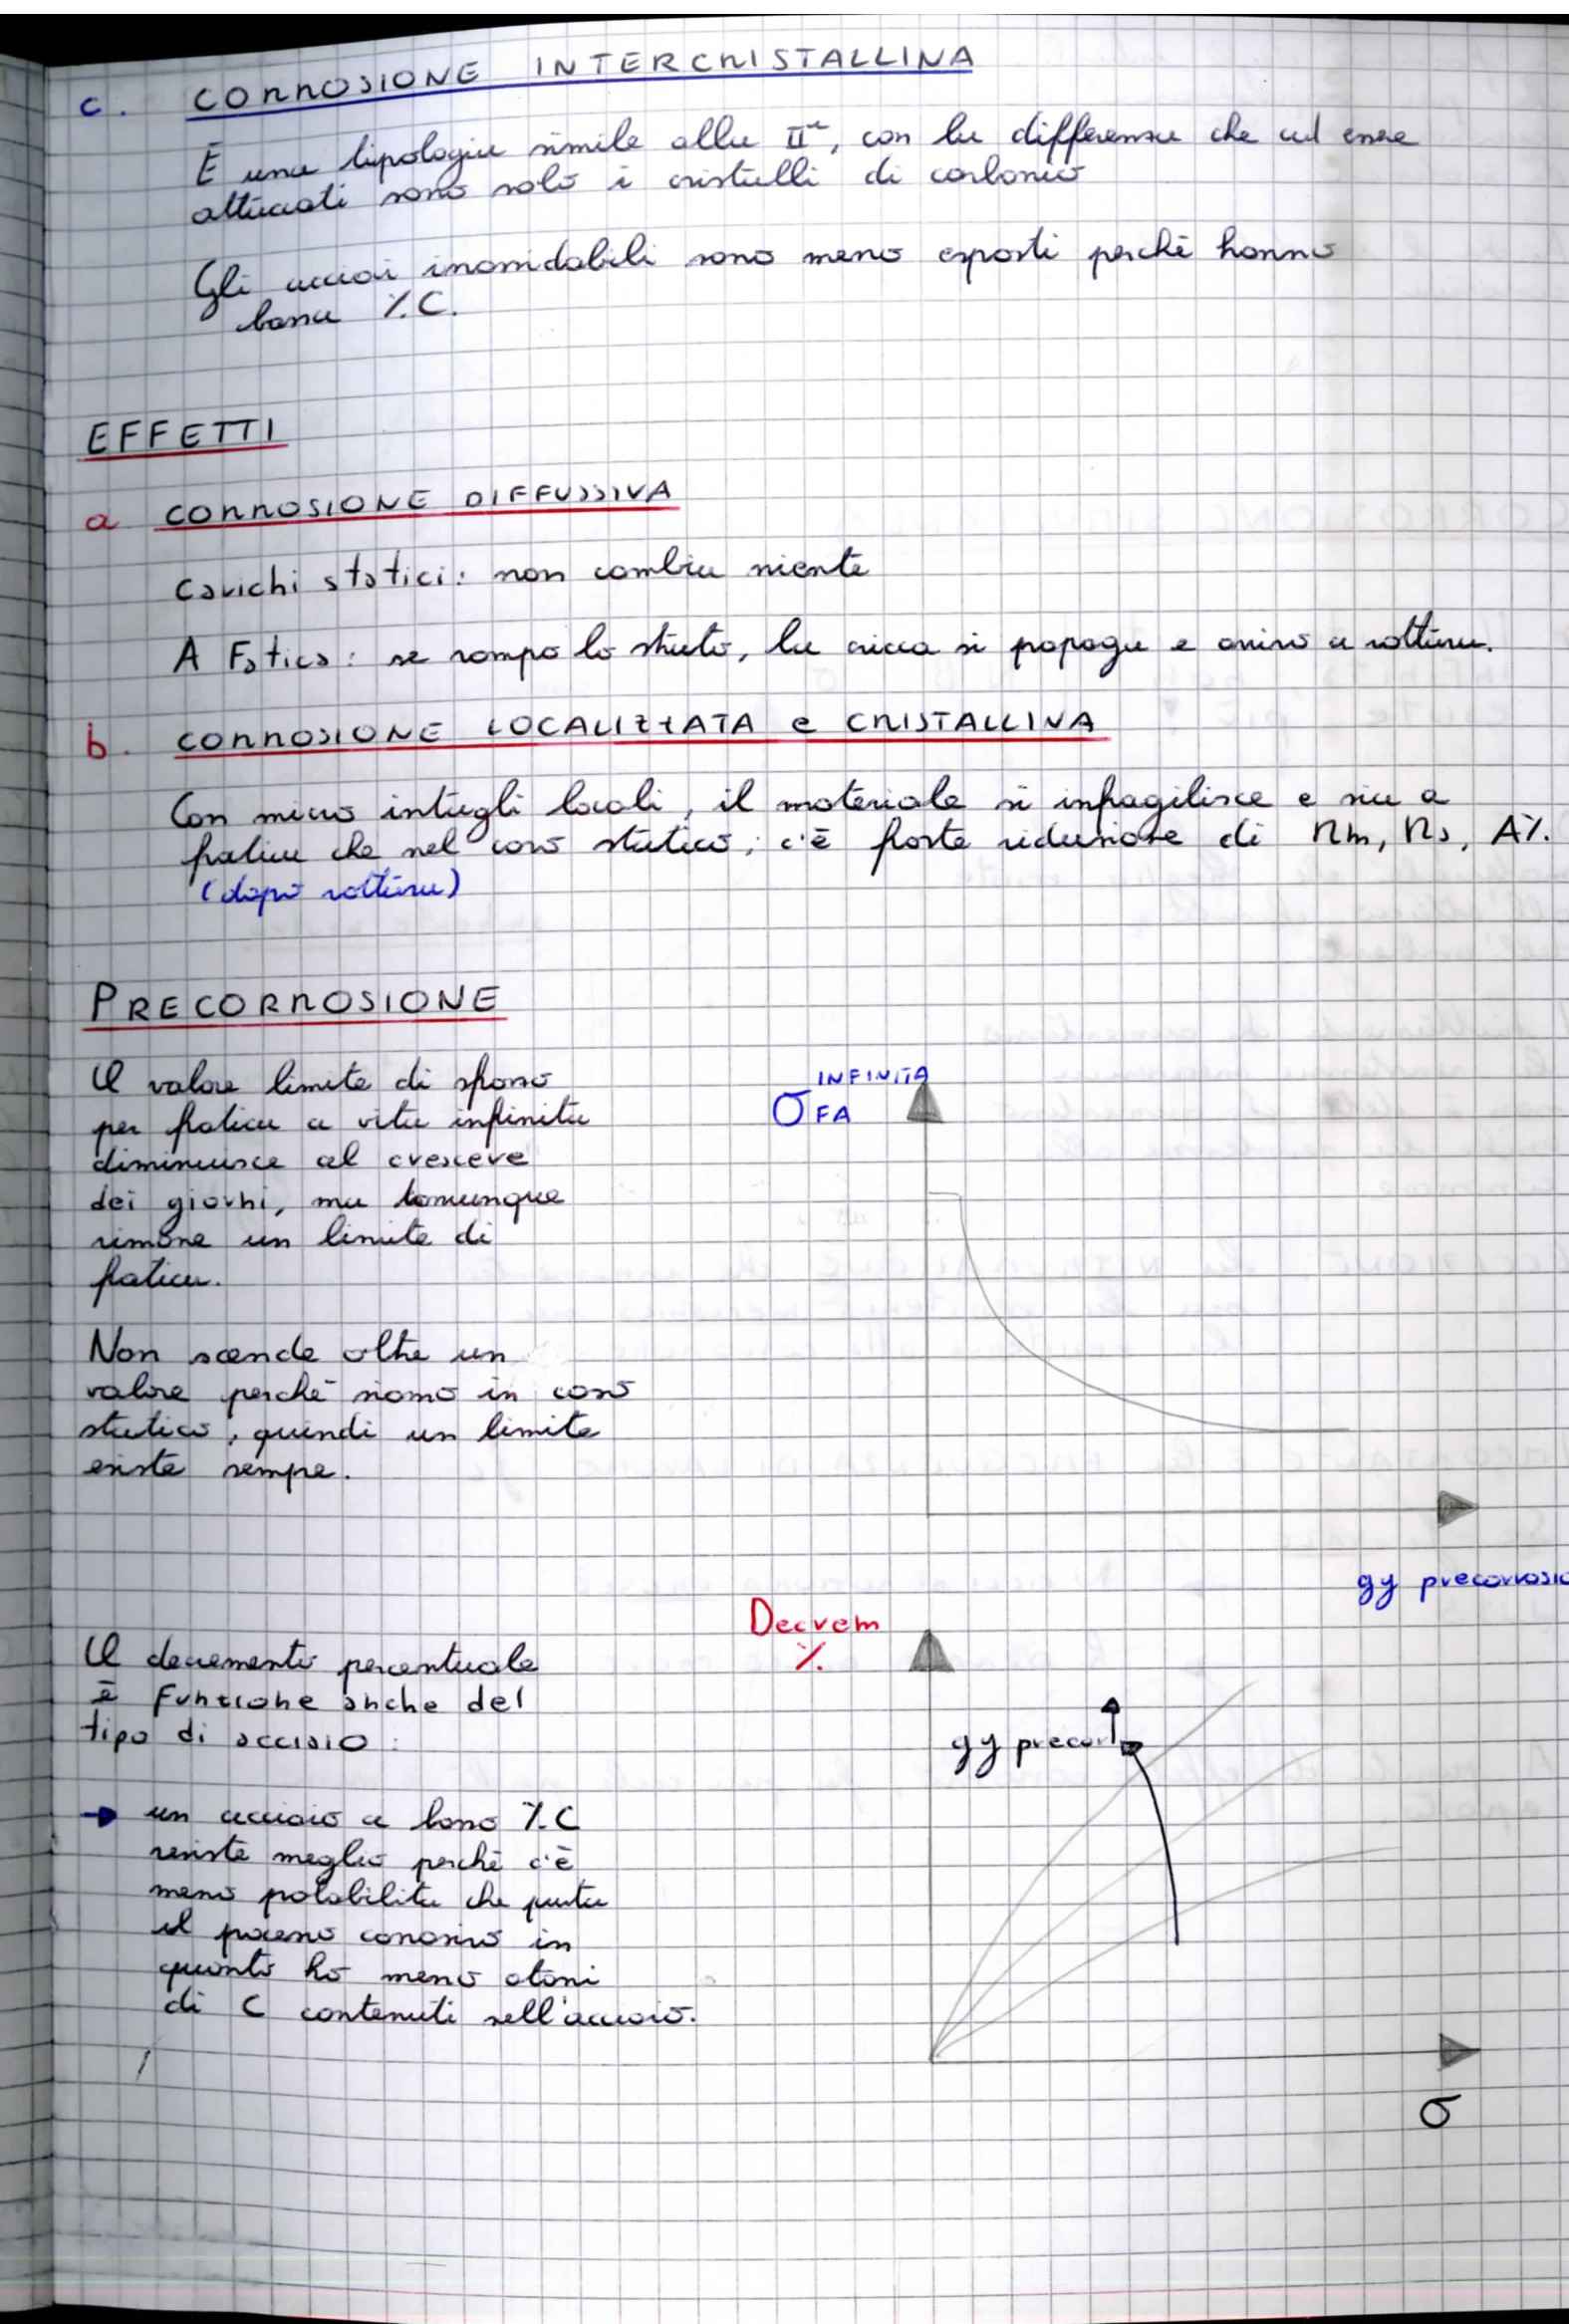 c. CORROSIONE INTERCRISTALLINA
È una tipologia simile alla IIª, con la differenza che ad essere
attaccati sono solo i cristalli di carbonio
Gli acciai inossidabili sono meno esposti perchè hanno
bassa %C.
EFFETTI
a CORROSIONE DIFFUSSIVA
Carichi statici: non cambia niente
A Fatica: se rompo lo strato, la cricca si propaga e arrivo a rottura.
b. CORROSIONE LOCALIZZATA e CRISTALLINA
Con micro intagli locali, il materiale si infragilisce e sia a
fatica che nel caso statico, c'è forte riduzione di Rm, Rs, A%.
(dopo rottura)
PRECORROSIONE
Il valore limite di sforzo
per fatica a vita infinita
diminuisce al crescere
dei giorni, ma comunque
rimane un limite di
fatica.
Non scende oltre un
valore perchè siamo in caso
statico, quindi un limite
esiste sempre.
σ FA INFINITA
gg precorrosio
Il decremento percentuale
è funzione anche del
tipo di acciaio:
→ un acciaio a basso %C
resiste meglio perchè c'è
meno probabilità che parta
il processo corrosivo in
quanto ho meno atomi
di C contenuti nell'acciaio.
Decrem
%
gg precorr
σ